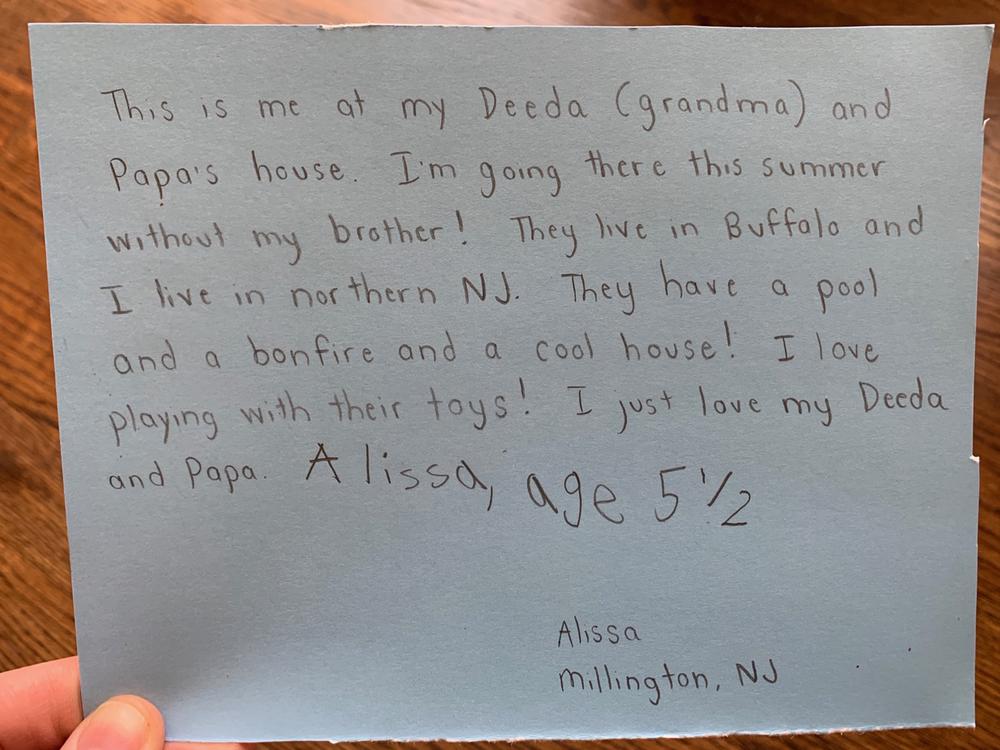 This is me at my Deeda (grandma) and
Papa's house. I'm going there this summer
without my brother! They live in Buffalo and
I live in northern NJ. They have a pool
and a bonfire and a cool house! I love
playing with their toys! I just love my Deeda
and Papa. Alissa, age 5 1/2
Alissa
Millington, NJ